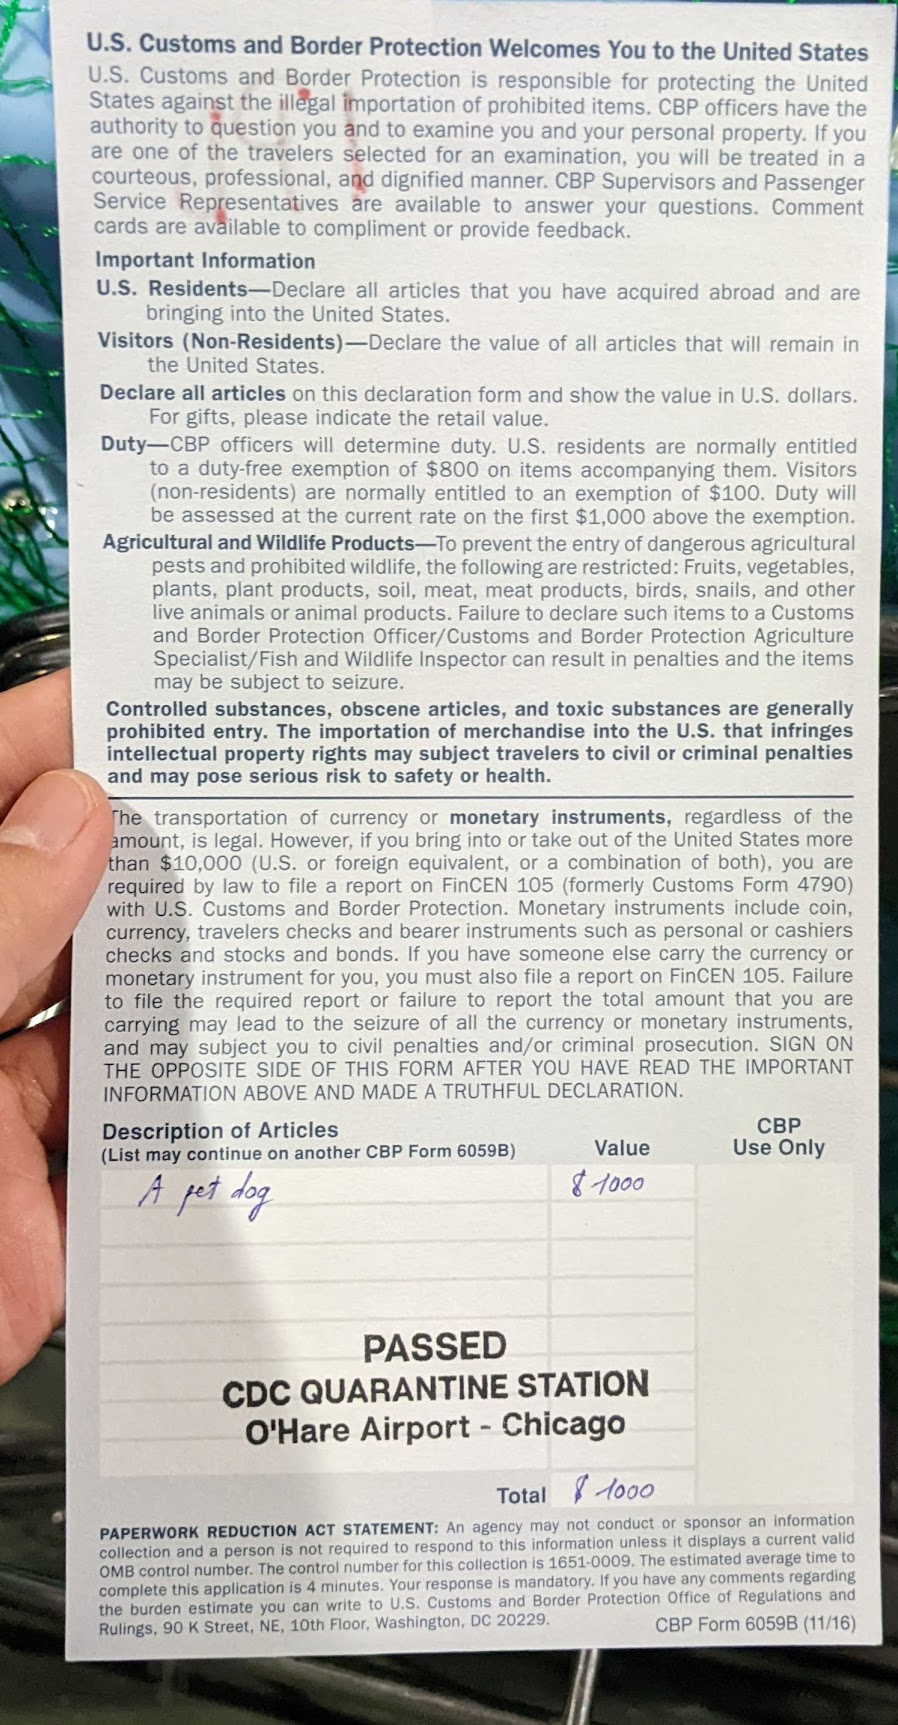 U.S. Customs and Border Protection Welcomes You to the United States
U.S. Customs and Border Protection is responsible for protecting the United
States against the illegal importation of prohibited items. CBP officers have the
authority to question you and to examine you and your personal property. If you
are one of the travelers selected for an examination, you will be treated in a
courteous, professional, and dignified manner. CBP Supervisors and Passenger
Service Representatives are available to answer your questions. Comment
cards are available to compliment or provide feedback.
Important Information
U.S. Residents—Declare all articles that you have acquired abroad and are
bringing into the United States.
Visitors (Non-Residents)—Declare the value of all articles that will remain in
the United States.
Declare all articles on this declaration form and show the value in U.S. dollars.
For gifts, please indicate the retail value.
Duty—CBP officers will determine duty. U.S. residents are normally entitled
to a duty-free exemption of $800 on items accompanying them. Visitors
(non-residents) are normally entitled to an exemption of $100. Duty will
be assessed at the current rate on the first $1,000 above the exemption.
Agricultural and Wildlife Products—To prevent the entry of dangerous agricultural
pests and prohibited wildlife, the following are restricted: Fruits, vegetables,
plants, plant products, soil, meat, meat products, birds, snails, and other
live animals or animal products. Failure to declare such items to a Customs
and Border Protection Officer/Customs and Border Protection Agriculture
Specialist/Fish and Wildlife Inspector can result in penalties and the items
may be subject to seizure.
Controlled substances, obscene articles, and toxic substances are generally
prohibited entry. The importation of merchandise into the U.S. that infringes
intellectual property rights may subject travelers to civil or criminal penalties
and may pose serious risk to safety or health.
The transportation of currency or monetary instruments, regardless of the
amount, is legal. However, if you bring into or take out of the United States more
than $10,000 (U.S. or foreign equivalent, or a combination of both), you are
required by law to file a report on FinCEN 105 (formerly Customs Form 4790)
with U.S. Customs and Border Protection. Monetary instruments include coin,
currency, travelers checks and bearer instruments such as personal or cashiers
checks and stocks and bonds. If you have someone else carry the currency or
monetary instrument for you, you must also file a report on FinCEN 105. Failure
to file the required report or failure to report the total amount that you are
carrying may lead to the seizure of all the currency or monetary instruments,
and may subject you to civil penalties and/or criminal prosecution. SIGN ON
THE OPPOSITE SIDE OF THIS FORM AFTER YOU HAVE READ THE IMPORTANT
INFORMATION ABOVE AND MADE A TRUTHFUL DECLARATION.
Description of Articles
(List may continue on another CBP Form 6059B)
Value
CBP
Use Only
A pet dog
$ 1000
PASSED
CDC QUARANTINE STATION
O'Hare Airport - Chicago
Total $ 1000
PAPERWORK REDUCTION ACT STATEMENT: An agency may not conduct or sponsor an information
collection and a person is not required to respond to this information unless it displays a current valid
OMB control number. The control number for this collection is 1651-0009. The estimated average time to
complete this application is 4 minutes. Your response is mandatory. If you have any comments regarding
the burden estimate you can write to U.S. Customs and Border Protection Office of Regulations and
Rulings, 90 K Street, NE, 10th Floor, Washington, DC 20229.
CBP Form 6059B (11/16)